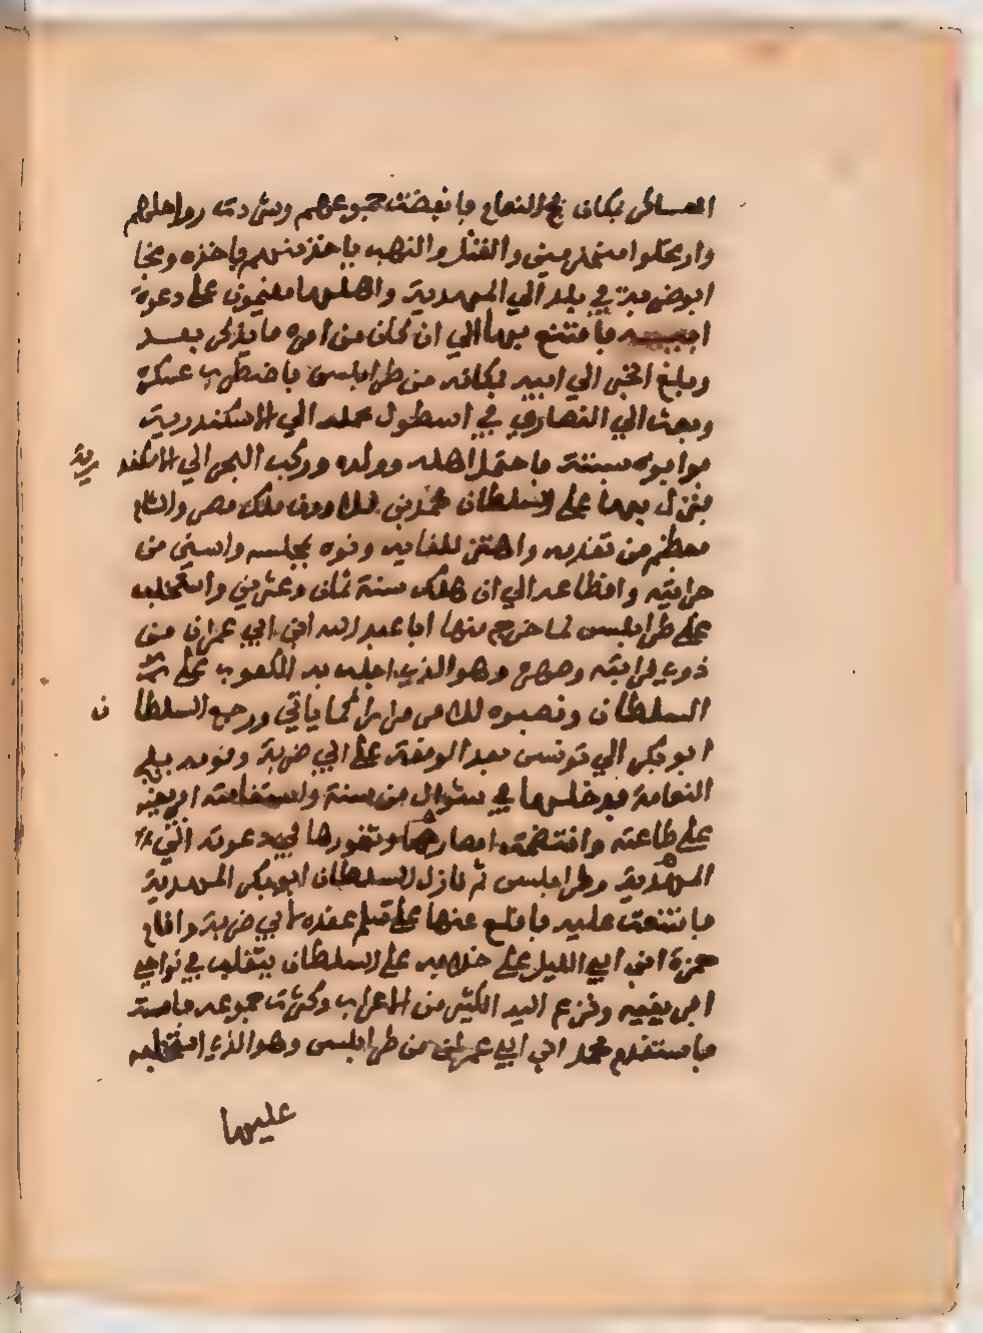 العساكر بمكان فج النعام فانفضت جموعهم وشردت رواحلهم
وارتحلوا منهزمين والقتل والنهب ياخذ منهم ماخذه ونجا
ابو ضربة في بلد الي المهدية واهلها مقيمون على دعوة
ابيه فامتنع بها الي ان كان من امره ما يذكر بعد
وبلغ الخبر الي ابيه بمكانه من طرابلس فاضطرب عسكره
وبعث الي النصاري في اسطول يحمله الي الاسكندرية
فوافوه بستة فاحتمل اهله وولده وركب البحر الي الاسكندرية
فنزل بها على السلطان محمد بن قلاوون ملك مصر والشام
فعظم من تقديمه واهتز للقايه ونوه بمجلسه واسني من
جرايته واقطاعه الي ان هلك سنة ثمان وعشرين واستخلف
على طرابلس لما خرج منها ابا عبد الله ابن ابي عمران من
ذوي قرابته وصهره وهو الذي اجلب به الكعوب على
السلطان ونصبوه للامر مرارا كما ياتي ورجع السلطان
ابو بكر الي تونس بعد الوقعة على ابي ضربة وقومه بفج
النعامة فدخلها في شوال من سنة واستقامت افريقية
على طاعته وانتظمت امصارها وثغورها في دعوته الا
المهدية وطرابلس ثم نازل السلطان ابو بكر المهدية
فامتنعت عليه فاقلع عنها على سلم عقده لابي ضربة واقام
حمزة ابن ابي الليل على خلافه على السلطان يتقلب في نواحي
افريقية ونزع اليه الكثير من الاعراب وكثرت جموعه
فاستقدم محمد ابن ابي عمران من طرابلس وهو الذي استخلفه
عليها